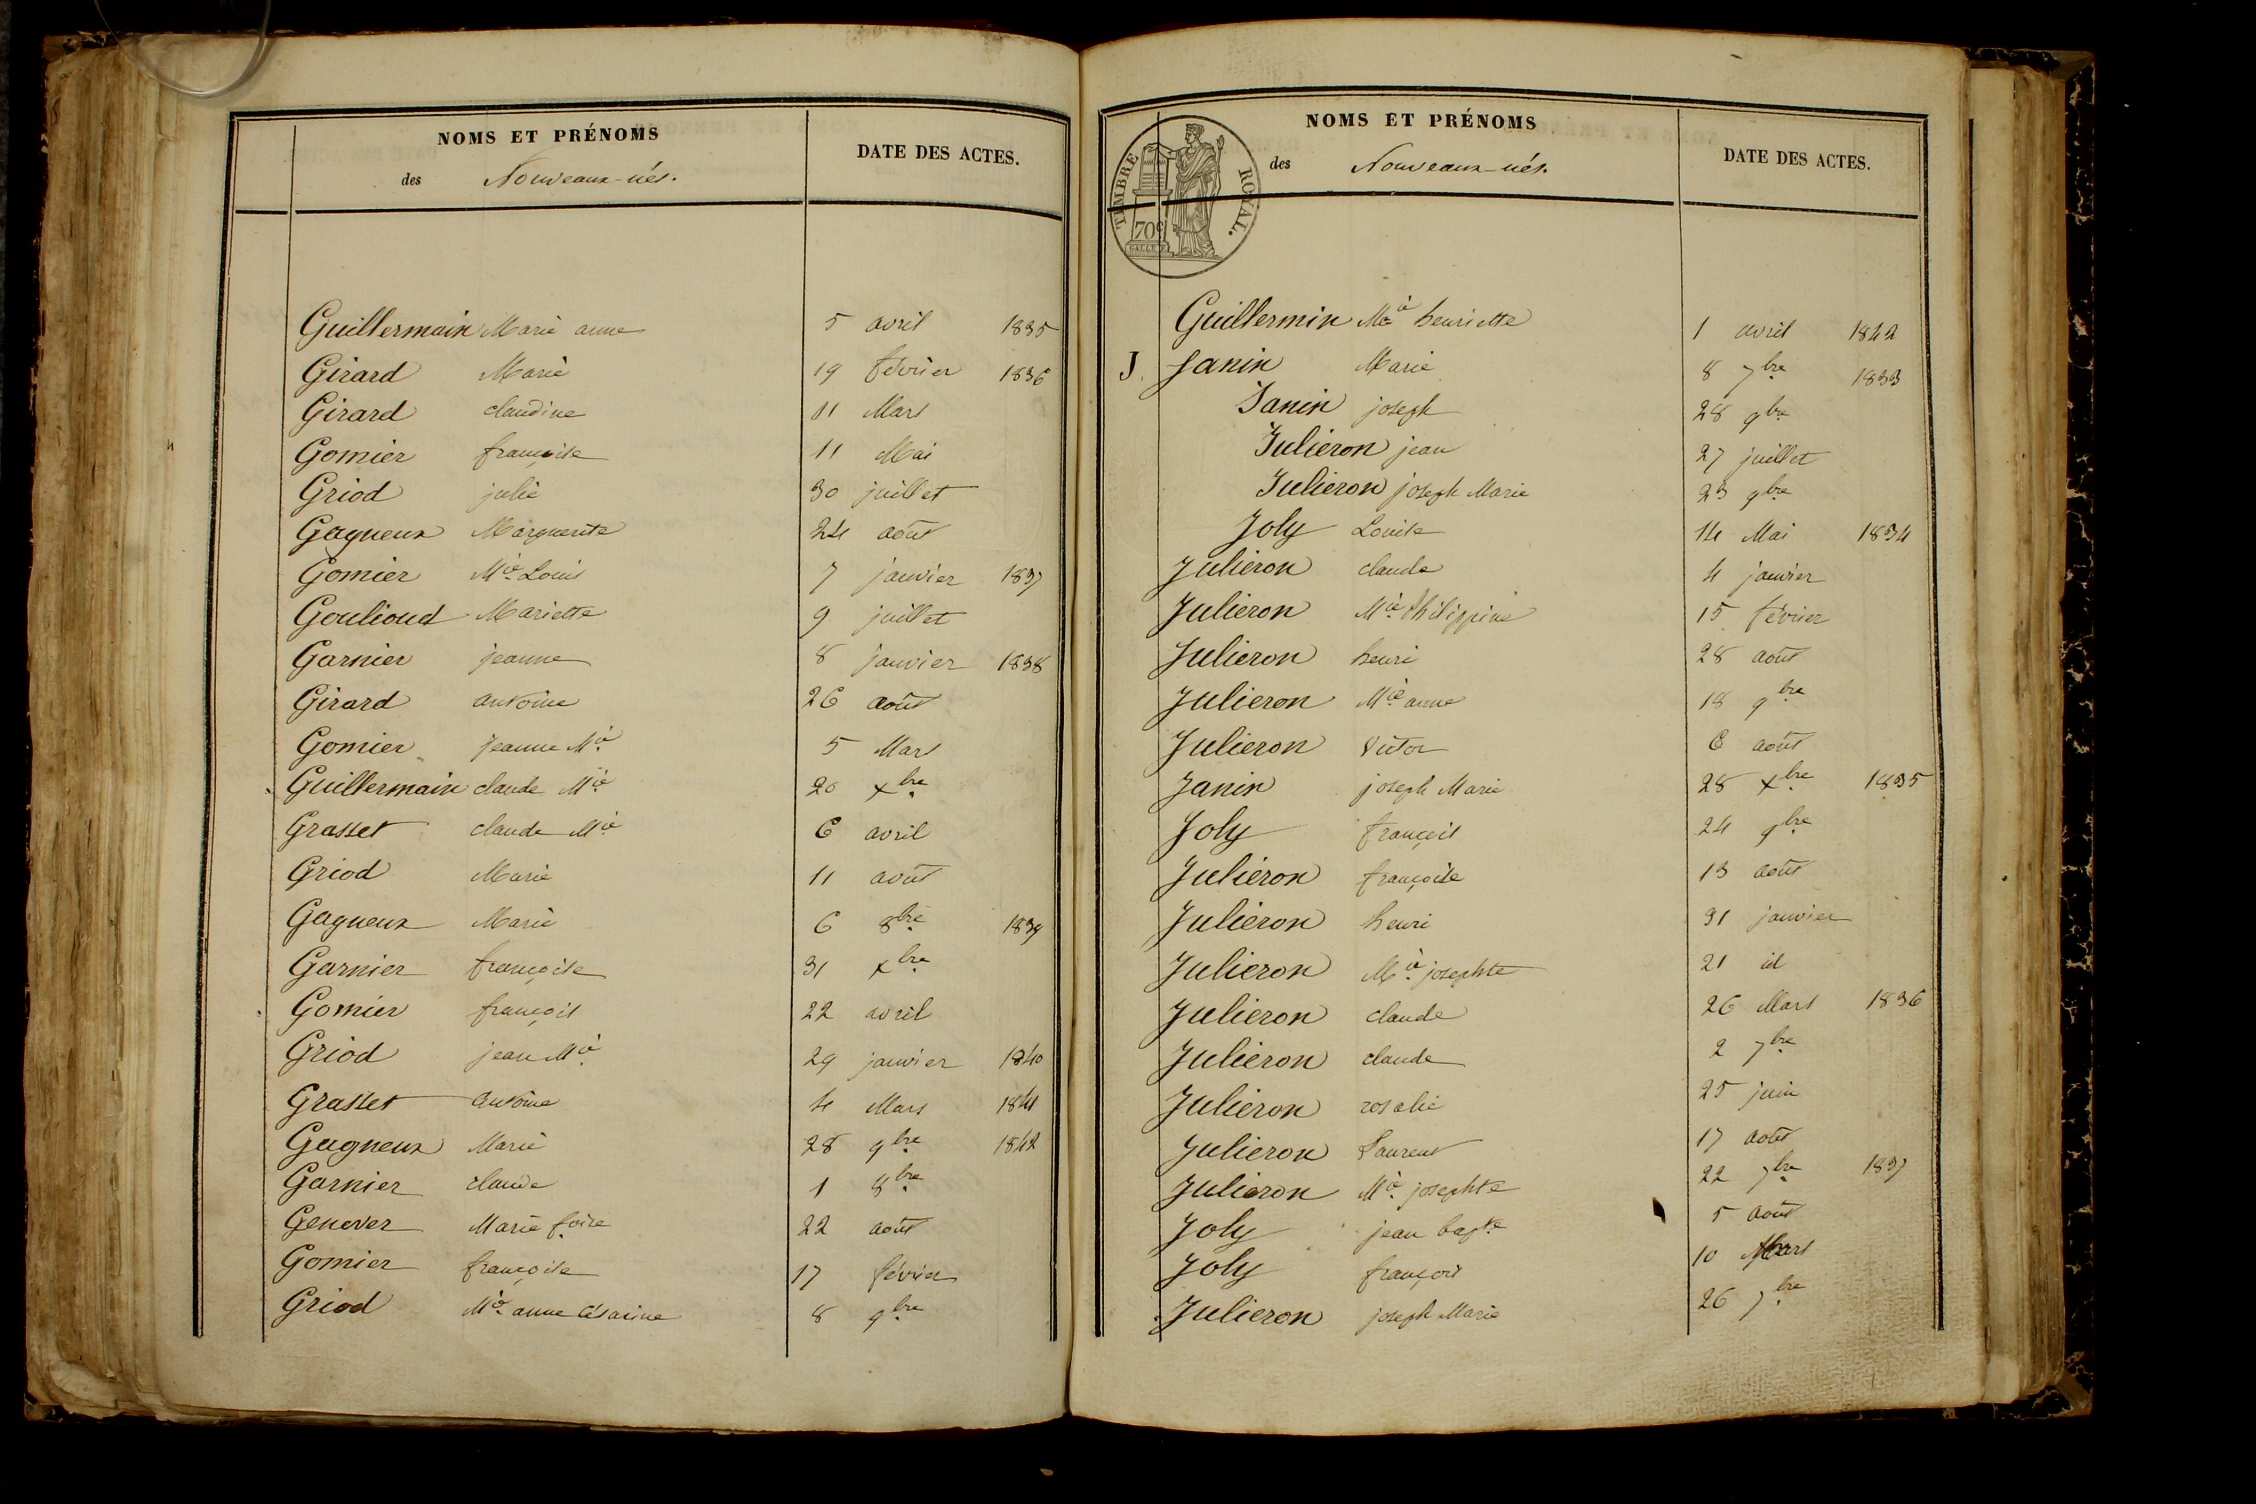 NOMS ET PRÉNOMS
des Nouveaux-nés.
DATE DES ACTES.
Guillermain Marie anne 5 avril 1835
Girard Marie 19 février 1836
Girard claudine 11 Mars
Gomier françoise 11 Mai
Griod julie 30 juillet
Gagneux Marguerite 24 août
Gomier Mie Louis 7 janvier 1837
Goulioud Mariette 9 juillet
Garnier jeanne 8 janvier 1838
Girard antoine 26 août
Gomier jeanne Mie 5 Mars
Guillermain claude Mie 20 xbre
Grasset claude Mie 6 avril
Griod Marie 11 août
Gagneux Marie 6 8bre 1839
Garnier françoise 31 xbre
Gomier françois 22 avril
Griod jean Mie 29 janvier 1840
Grasset antoine 4 Mars 1841
Gagneux Marie 28 9bre 1842
Garnier claude 1 8bre
Genever Marie foise 22 août
Gomier françoise 17 février
Griod Mie anne Césarine 8 9bre
NOMS ET PRÉNOMS
des Nouveaux-nés.
DATE DES ACTES.
TIMBRE ROYAL.
70c
Guillermin Mie henriette 1 avril 1842
J. Janin Marie 8 7bre 1833
Janin joseph 28 9bre
Julieron jean 27 juillet
Julieron joseph Marie 23 9bre
Joly Louise 14 Mai 1834
Julieron claude 4 janvier
Julieron Mie Philippine 15 février
Julieron henri 28 août
Julieron Mie anne 18 9bre
Julieron Victor 6 août
Janin joseph Marie 28 xbre 1835
Joly françois 24 9bre
Julieron françoise 13 août
Julieron henri 31 janvier
Julieron Mie josephte 21 id
Julieron claude 26 Mars 1836
Julieron claude 2 7bre
Julieron rosalie 25 juin
Julieron Laurent 17 août
Julieron Mie josephte 22 7bre 1837
Joly jean bapte 5 août
Joly françois 10 Mars
Julieron joseph Marie 26 7bre